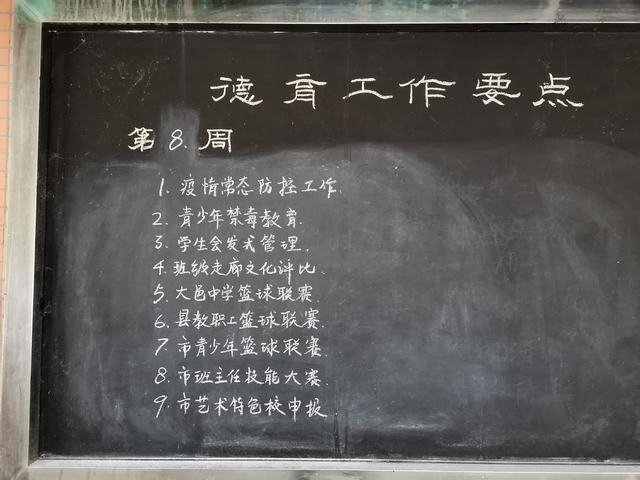 德育工作要点
第8.周
1. 疫情常态防控工作.
2. 青少年禁毒教育.
3. 学生会发式管理.
4. 班级走廊文化评比.
5. 大邑中学篮球联赛.
6. 县教职工篮球联赛.
7. 市青少年篮球联赛.
8. 市班主任技能大赛.
9. 市艺术特色校申报